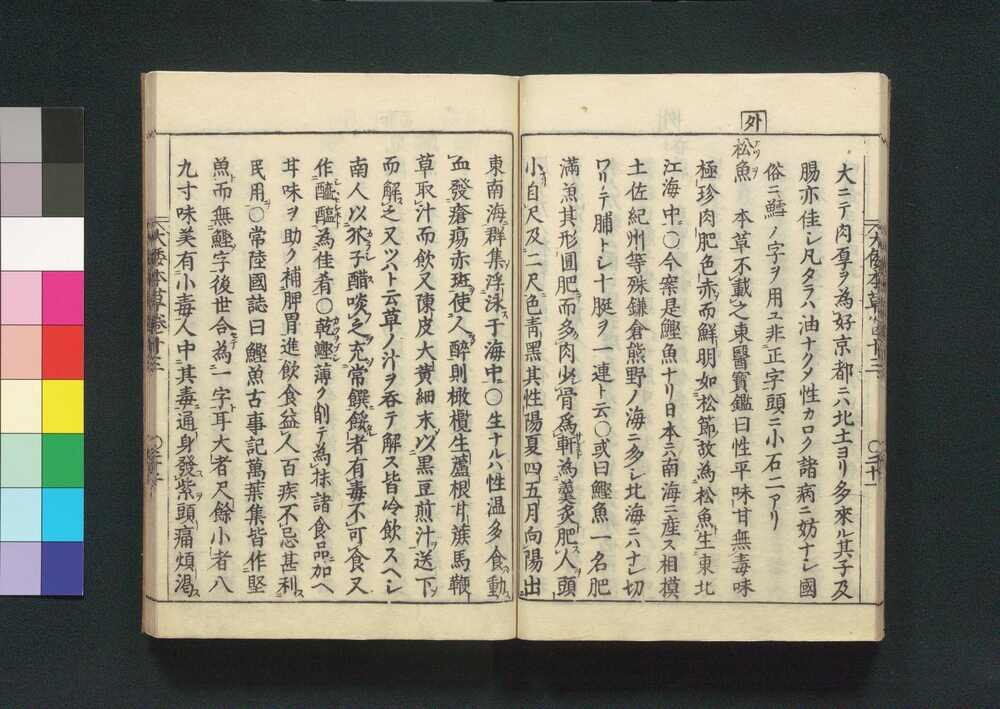 大ニテ肉厚ヲ為好京都ニハ北土ヨリ多來ル其子及
腸亦佳シ凡タラハ油ナクメ性カロク諸病ニ妨ナシ國
俗ニ鱈ノ字ヲ用ユ非正字頭ニ小石二アリ
外
松魚 本草不載之東醫寳鑑曰性平味甘無毒味
極珍肉肥色赤而鮮明如松節故為松魚生東北
江海中○今案是鰹魚ナリ日本ニ南海ニ産ス相摸
土佐紀州等殊鎌倉熊野ノ海ニ多シ北海ニハナシ切
ワリテ脯トシ十挺ヲ一連ト云○或曰鰹魚一名肥
滿魚其形圓肥而多肉少骨為軒為羹炙肥人頭
小自尺及二尺色青黑其性陽夏四五月向陽出
大倭本草巻十三
東南海群集浮泳于海中○生ナルハ性温多食動
血發瘡瘍赤斑使人醉則橄欖生蘆根甘蔗馬鞭
草取汁而飲又陳皮大黄細末以黒豆煎汁送下
而解之又ツハト云草ノ汁ヲ呑テ解ス皆冷飲スヘシ
南人以芥子醋啖之充常饌餒者有毒不可食又
作醢醢為佳肴○乾鰹薄ク削テ為抹諸食品加へ
其味ヲ助ク補脾胃進飲食益人百疾不忌甚利
民用○常陸國誌曰鰹魚古事記萬葉集皆作堅
魚而無鰹字後世合為一字耳大者尺餘小者八
九寸味美有小毒人中其毒通身發紫頭痛煩渇
大倭本草巻十三